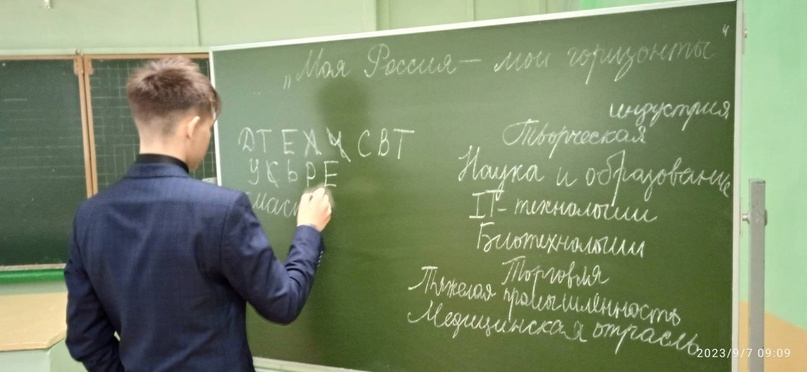 „Моя Россия — мои горизонты“
ДТЕХЧСВТ
УКЬРЕ
индустрия
Творческая
Наука и образование
IT-технологии
Биотехнологии
Торговля
Тяжелая промышленность
Медицинская отрасль
2023/9/7 09:09